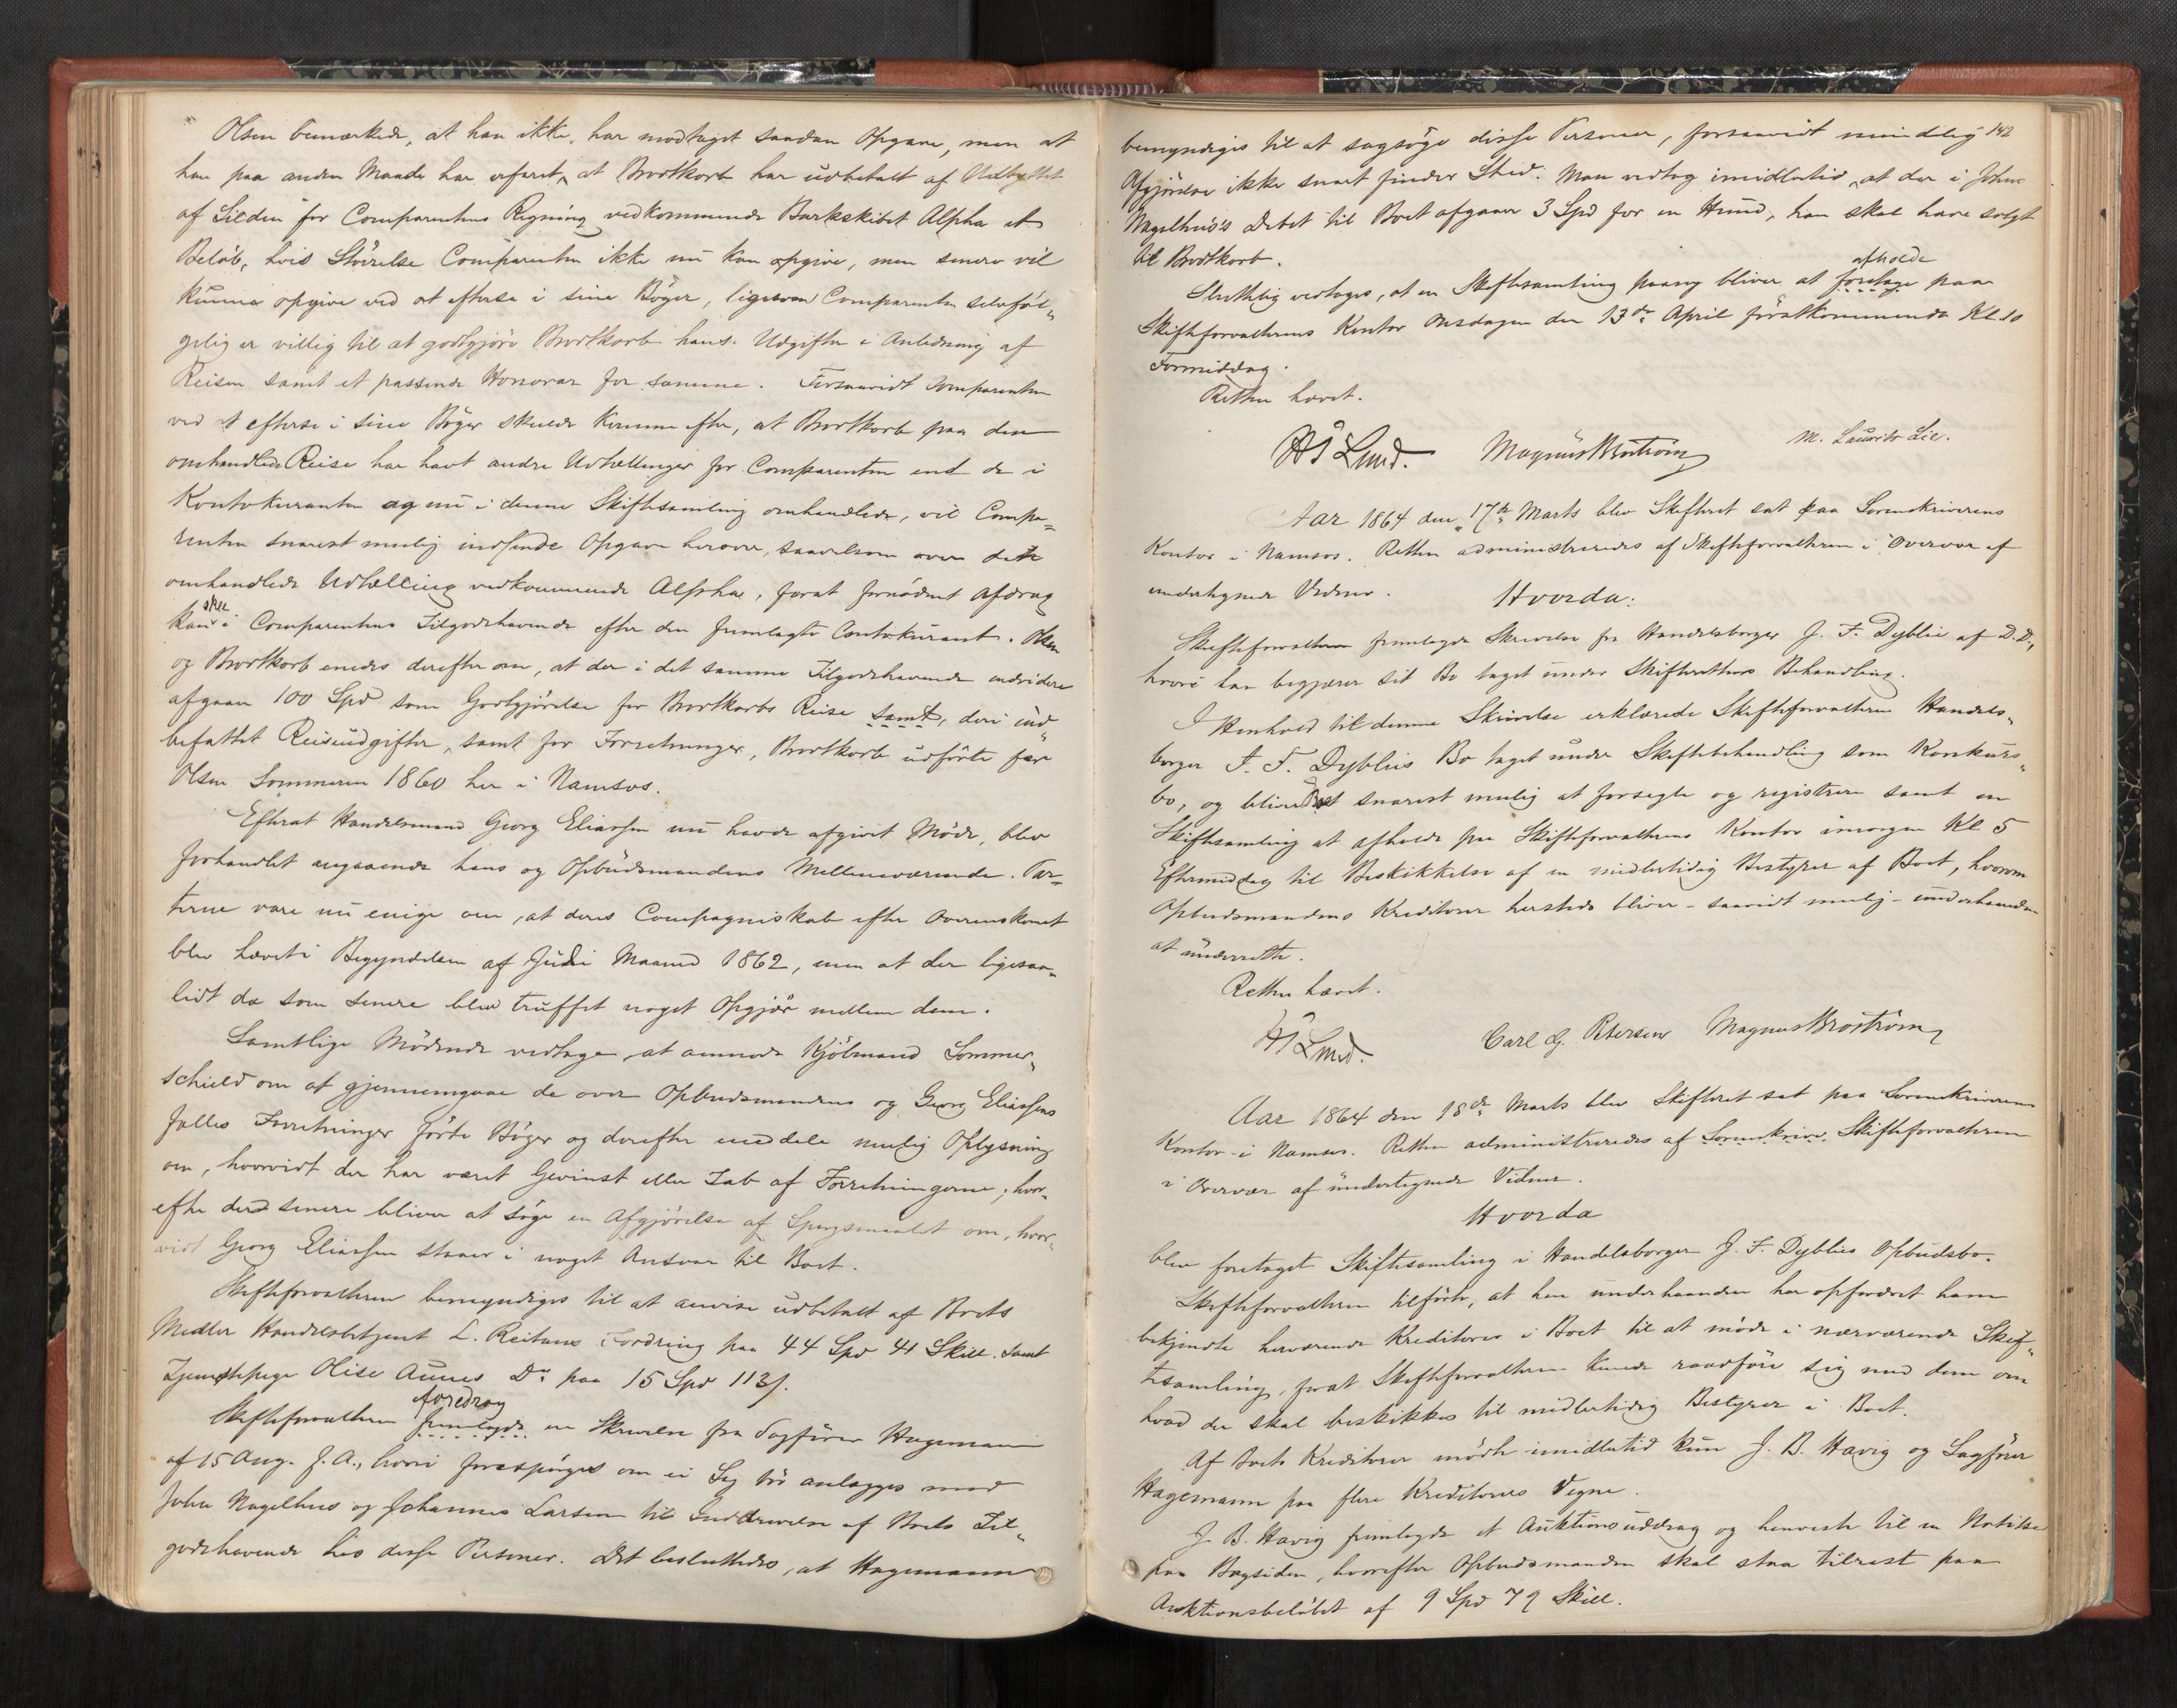 Olsen bemærkede, at han ikke har modtaget saadan Opgave, men at
han paa anden Maade har erfaret, at Brodtkorb har udbetalt af Udbyttet
af Silden for Comparentens Regning vedkommende Barkskibet Alpha et
Beløb, hvis Størrelse Comparenten ikke nu kan opgive, men senere vil
kunne opgive ved at efterse i sine Bøger, ligesom Comparenten selvføl-
gelig er villig til at godtgjøre Brodtkorb hans Udgifter i Anledning af
Reisen samt et passende Honorar for samme. Forsaavidt Comparenten
ved at efterse i sine Bøger skulde komme efter, at Brodtkorb paa den
omhandlede Reise har havt andre Udtællinger for Comparenten end de i
Kontokuranten og nu i denne Skiftesamling omhandlede, vil Compa-
renten snarest mulig indsende Opgave herover, saavelsom over dette
omhandlede Udtælling vedkommende Alpha, forat fornødent Afdrag
kan skee i Comparentens Tilgodehavende efter den fremlagte Contokurant. Olsen
og Brodtkorb enedes derefter om, at der i det samme Tilgodehavende endvidere
afgaaer 100 Spd som Godtgjørelse for Brodtkorbs Reise samt, deri ind-
befattet Reiseudgifter, samt for Forretninger, Brodtkorb udførte for
Olsen Sommeren 1860 her i Namsos.
Efterat Handelsmand Georg Eliassen nu havde afgivet Møde, blev
forhandlet angaaende hans og Opbudsmandens Mellemværende. Par-
terne vare nu enige om, at deres Compagniskab efter Overenskomst
blev hævet i Begyndelsen af Juli Maaned 1862, men at der ligesaa-
lidt da som senere blev truffet noget Opgjør mellem dem.
Samtlige Mødende vedtage at anmode Kjøbmand Sommer-
schield om at gjennemgaae de over Opbudsmandens og Georg Eliassens
fælles Forretninger førte Bøger og derefter meddele mulig Oplysning
om, hvorvidt der har været Gevinst eller Tab af Forretningerne; hvor-
efter der senere bliver at søge en Afgjørelse af Spørgsmaalet om, hvor-
vidt Georg Eliassen staaer i noget Ansvar til Boet.
Skifteforvalteren bemyndiges til at anvise udbetalt af Boets
Midler Handelsbetjent L. Reitans Fordring paa 44 Spd 41 Skill. samt
Tjenestepige Olise Aunes Do paa 15 Spd 113 s.
Skifteforvalteren fremlagde foredrog en Skrivelse fra Sagfører Hagemann
af 15 Aug. f. A., hvori forespørges om ei Sag bør anlægges mod
John Nagelhus og Johannes Larsen til Inddrivelse af Boets Til-
godehavende hos disse Personer. Det besluttedes, at Hagemann
142
bemyndiges til at sagsøge disse Personer, forsaavidt mindelig
Afgjørelse ikke snart finder Sted. Man vedtog imidlertid, at der i John
Nagelhus's Debet til Boet afgaaer 3 Spd for en Hund, han skal have solgt
til Brodtkorb.
Sluttelig vedtages, at en Skiftesamling paany bliver at foretage afholde paa
Skifteforvalterens Kontor Onsdagen den 13de April førstkommende Kl. 10
Formiddag.
Retten hævet.
HJ Lund. Magnus Broström M. Lauritz Lie.
Aar 1864 den 17de Marts blev Skifteret sat paa Sorenskriverens
Kontor i Namsos. Retten administreredes af Skifteforvalteren i Overvær af
undertegnede Vidner.
Hvorda:
Skifteforvalteren fremlagde Skrivelse fra Handelsborger J. F. Dyblie af D.D.,
hvori han begjærer sit Bo taget under Skifterettens Behandling.
I Henhold til denne Skrivelse erklærede Skifteforvalteren Handels-
borger J. F. Dyblies Bo taget under Skiftebehandling som Konkurs-
bo, og bliver Boet snarest mulig at forsegle og registrere samt en
Skiftesamling at afholde paa Skifteforvalterens Kontor imorgen Kl 5
Eftermiddag til Beskikkelse af en midlertidig Bestyrer af Boet, hvorom
Opbudsmandens Kreditorer hersteds bliver - saavidt mulig - underhaanden
at underrette.
Retten hævet.
HJ Lund. Carl G. Petersen Magnus Broström
Aar 1864 den 18de Marts blev Skifteret sat paa Sorenskriverens
Kontor i Namsos. Retten administreredes af Sorenskrive. Skifteforvalteren
i Overvær af undertegnede Vidner.
Hvorda
blev foretaget Skiftesamling i Handelsborger J. F. Dyblies Opbudsbo.
Skifteforvalteren tilførte, at han underhaanden har opfordret ham
bekjendte herværende Kreditorer i Boet til at møde i nærværende Skif-
tesamling, forat Skifteforvalteren kunde raadføre sig med dem om
hvad der skal beskikkes til midlertidig Bestyrer i Boet.
Af Boets Kreditorer mødte imidlertid kun J. B. Havig og Sagfører
Hagemann paa flere Kreditorers Vegne.
J. B. Havig fremlagde et Auktionsuddrag og henviste til en Notitse
paa Bagsiden, hvorefter Opbudsmanden skal staa tilrest paa
Auktionsbeløbet af 9 Spd 79 Skill.